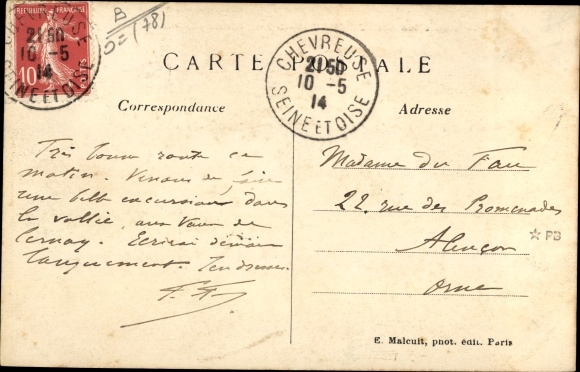 RÉPUBLIQUE FRANÇAISE
10
CHEVREUSE
21 50
10 -5
14
SEINE ET OISE
B
(78)
CARTE POSTALE
CHEVREUSE
21 50
10 -5
14
SEINE ET OISE
Correspondance
Adresse
Très bonne route ce
matin. Venons de faire
une belle excursion dans
la vallée, aux Vaux de
Cernay. Écrirai demain
longuement. Tendresses.
Madame du Fau
22. rue des Promenades
Alençon
Orne
☆ PB
E. Malcuit, phot. édit. Paris